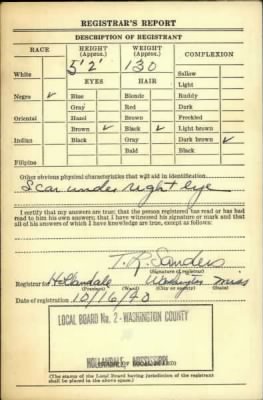 REGISTRAR'S REPORT
DESCRIPTION OF REGISTRANT
RACE HEIGHT (Approx.) WEIGHT (Approx.) COMPLEXION
5' 2' 130
White Sallow
EYES HAIR Light
Negro ✓ Blue Blonde Ruddy
Gray Red Dark
Oriental Hazel Brown Freckled
Brown ✓ Black ✓ Light brown
Indian Black Gray Dark brown ✓
Bald Black
Filipino
Other obvious physical characteristics that will aid in identification
Scar under right Eye
I certify that my answers are true; that the person registered has read or has had
read to him his own answers; that I have witnessed his signature or mark and that
all of his answers of which I have knowledge are true, except as follows:
T. R. Sanders
(Signature of registrar)
Registrar for Hollandale Washington Miss
(Precinct) (Ward) (City or county) (State)
Date of registration 10/16/40
LOCAL BOARD No. 2 - WASHINGTON COUNTY
HOLLANDALE MISSISSIPPI
(STAMP OF LOCAL BOARD)
(The stamp of the Local Board having jurisdiction of the registrant
shall be placed in the above space.)